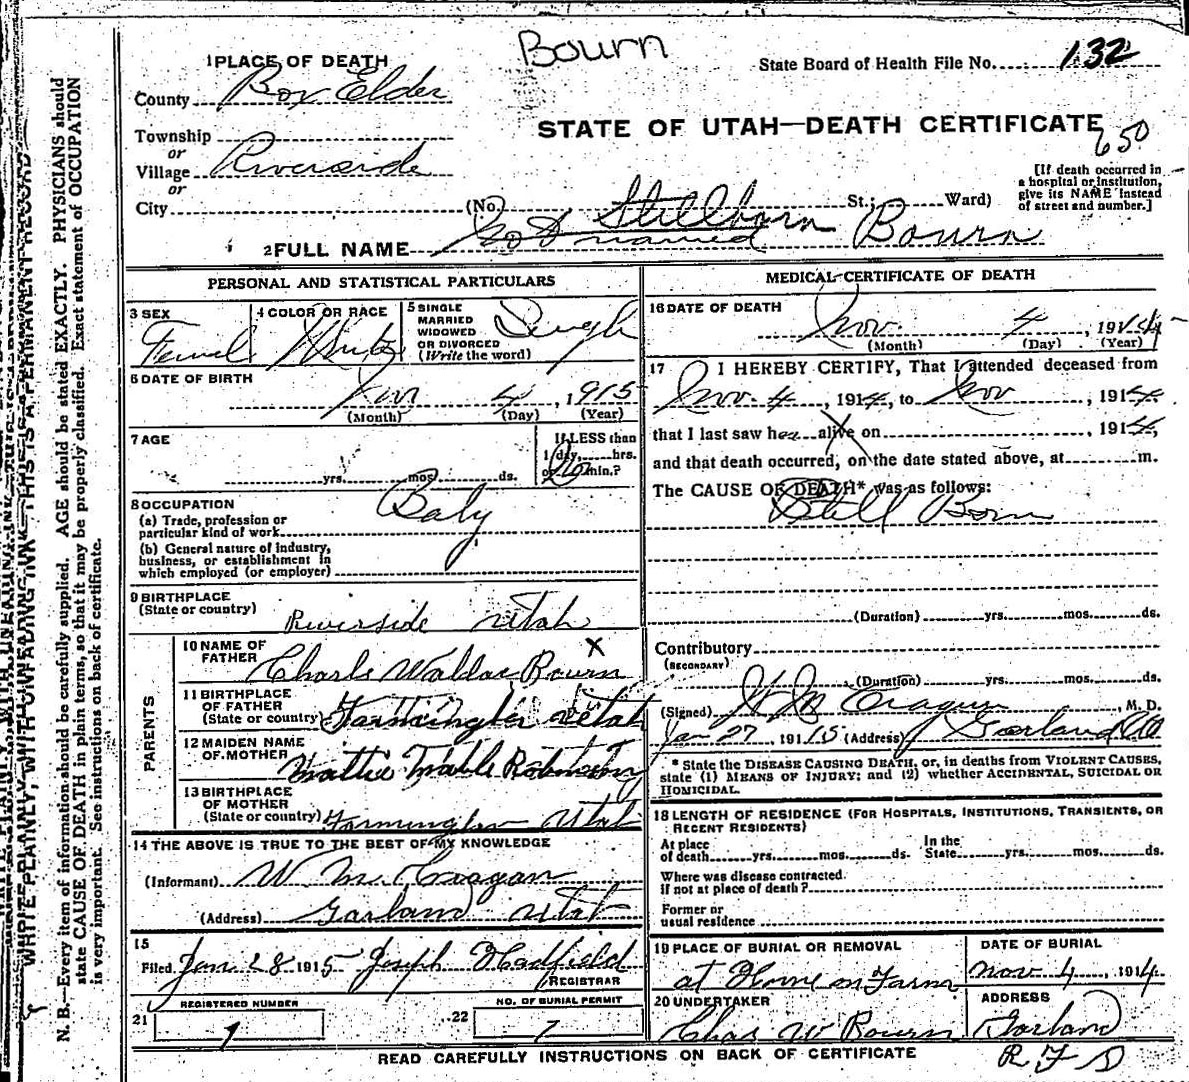 Bourn
1 PLACE OF DEATH
State Board of Health File No. 132
County Box Elder
STATE OF UTAH—DEATH CERTIFICATE
650
Township
or
Village Riverside
or
City (No. St.; Ward)
[If death occurred in
a hospital or institution,
give its NAME instead
of street and number.]
Stillborn
2 FULL NAME Not named Bourn
PERSONAL AND STATISTICAL PARTICULARS
3 SEX
Femal
4 COLOR OR RACE
White
5 SINGLE
MARRIED
WIDOWED
OR DIVORCED
(Write the word)
Singl
6 DATE OF BIRTH
4, 1915
(Month) (Day) (Year)
7 AGE
yrs. mos. ds.
If LESS than
1 day, hrs.
or min.?
8 OCCUPATION
(a) Trade, profession or
particular kind of work
Baby
(b) General nature of industry,
business, or establishment in
which employed (or employer)
9 BIRTHPLACE
(State or country)
Riverside Utah
PARENTS
10 NAME OF
FATHER
Charls Wallac Bourn
X
11 BIRTHPLACE
OF FATHER
(State or country) Farmington Utah
12 MAIDEN NAME
OF MOTHER
Mattie Mable
13 BIRTHPLACE
OF MOTHER
(State or country) Farmington Utah
14 THE ABOVE IS TRUE TO THE BEST OF MY KNOWLEDGE
(Informant) W. M. Cragan
(Address) Garland Utah
15
Filed Jan 28 1915 Joseph Hadfield
REGISTRAR
REGISTERED NUMBER
21 1
NO. OF BURIAL PERMIT
22 7
MEDICAL CERTIFICATE OF DEATH
16 DATE OF DEATH
Nov. 4, 1914
(Month) (Day) (Year)
17 I HEREBY CERTIFY, That I attended deceased from
Nov. 4, 1914, to Nov, 1914
that I last saw her alive on , 1914,
and that death occurred, on the date stated above, at m.
The CAUSE OF DEATH* was as follows:
Still Born
(Duration) yrs. mos. ds.
Contributory
(SECONDARY)
(Duration) yrs. mos. ds.
(Signed) W M Cragun, M. D.
Jan 27, 1915 (Address) Garland
* State the DISEASE CAUSING DEATH, or, in deaths from VIOLENT CAUSES,
state (1) MEANS OF INJURY; and (2) whether ACCIDENTAL, SUICIDAL OR
HOMICIDAL.
18 LENGTH OF RESIDENCE (FOR HOSPITALS, INSTITUTIONS, TRANSIENTS, OR
RECENT RESIDENTS)
At place
of death yrs. mos. ds.
In the
State yrs. mos. ds.
Where was disease contracted
if not at place of death?
Former or
usual residence
19 PLACE OF BURIAL OR REMOVAL
at Home on Farm
DATE OF BURIAL
Nov 4, 1914
20 UNDERTAKER
Chas W Bourn
ADDRESS
Garland
R F D
READ CAREFULLY INSTRUCTIONS ON BACK OF CERTIFICATE
WRITE PLAINLY, WITH UNFADING INK—THIS IS A PERMANENT RECORD
N. B.—Every item of information should be carefully supplied. AGE should be stated EXACTLY. PHYSICIANS should
state CAUSE OF DEATH in plain terms, so that it may be properly classified. Exact statement of OCCUPATION
is very important. See instructions on back of certificate.